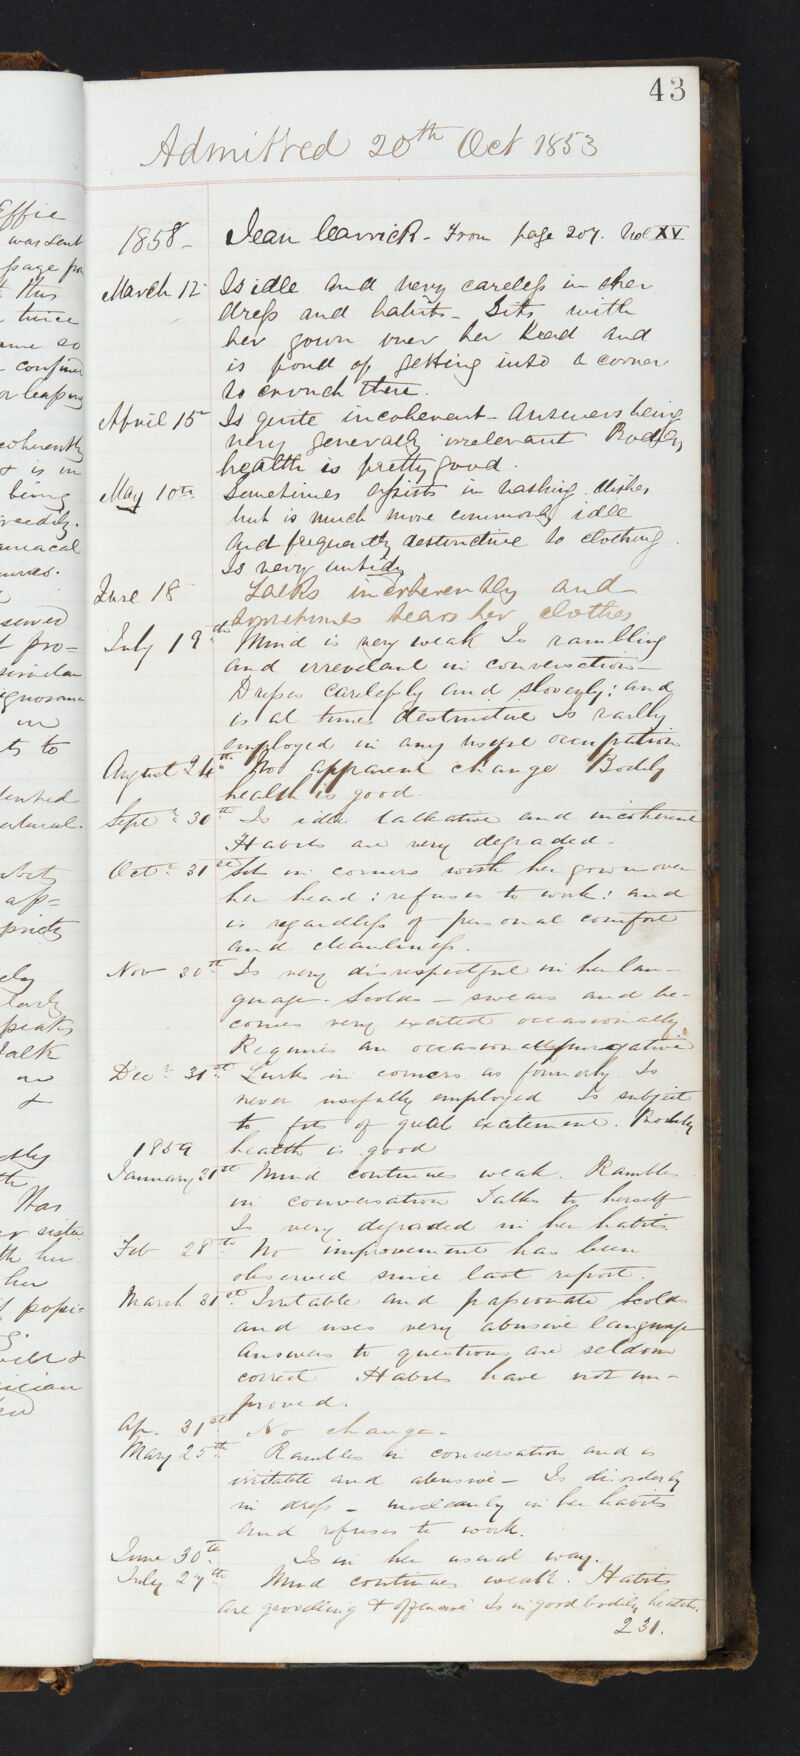 43
Admitted 20th Oct 1853
1858 - Jean Carrick - From page 207. Vol XV
March 12 Is idle and very careless in her
dress and habits - Sits with
her gown over her head and
is fond of getting into a corner
to crouch there.
April 15 Is quite incoherent - Answers being
very generally irrelevant Bodily
health is pretty good.
May 10th Sometimes assists in washing dishes
but is much more commonly idle
and frequently destructive to clothing.
Is very untidy
June 18 Talks incoherently and
sometimes tears her clothes
July 19th Mind is very weak Is rambling
and irrevelant in conversation -
Dresses carelessly and slovenly: and
is at times destructive Is rarely
employed in any useful occupation
August 24th No apparent change Bodily
health is good.
Septr 30th Is idle talkative and incoherent
Habits are very degraded.
Octr 31st Sits in corners with her gown over
her head: refuses to work: and
is regardless of personal comfort
and cleanliness.
Nov 30th Is very disrespectful in her lan-
guage. Scolds - swears and be-
comes very excited occasionally.
Requires an occasional purgative
Decr 31st Lurks in corners as formerly. Is
never usefully employed Is subject
to fits of great excitement. Bodily
1859 health is good
January 31st Mind continues weak. Rambles
in conversation Talks to herself
Is very degraded in her habits.
Feb 28th No improvement has been
observed since last report.
March 31st Irritable and passionate Scolds
and uses very abusive language
Answers to questions are seldom
correct Habits have not im-
proved.
Ap. 31st No change.
May 25th Rambles in conversation and is
irritable and abusive - Is disorderly
in dress - uncleanly in her habits
and refuses to work.
June 30th Is in her usual way.
July 27th Mind continues weak. Habits
are grovelling & offensive Is in good bodily health.
231.
Effie
was sent
page
this
twice
so
confined
or leaping
coherently
& is in
being
served
pro-
similar
in
ts to
natural.
ap-
talk
&
Was
her sister
her